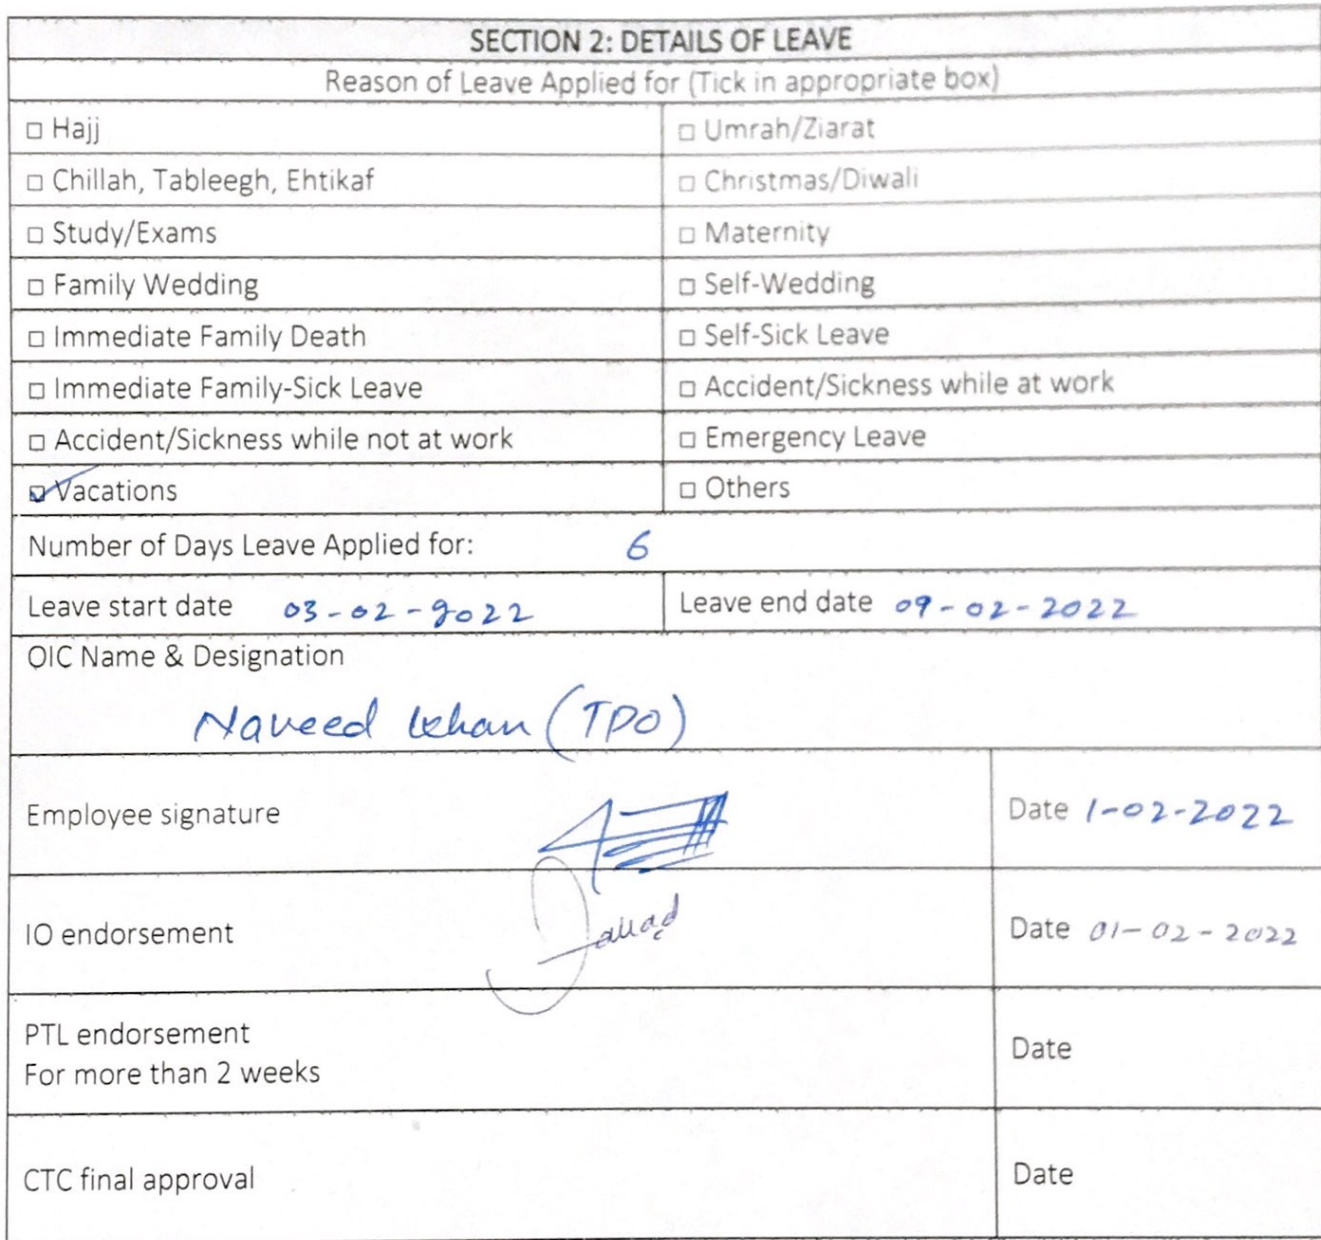 SECTION 2: DETAILS OF LEAVE
Reason of Leave Applied for (Tick in appropriate box)
□ Hajj
□ Umrah/Ziarat
□ Chillah, Tableegh, Ehtikaf
□ Christmas/Diwali
□ Study/Exams
□ Maternity
□ Family Wedding
□ Self-Wedding
□ Immediate Family Death
□ Self-Sick Leave
□ Immediate Family-Sick Leave
□ Accident/Sickness while at work
□ Accident/Sickness while not at work
□ Emergency Leave
☑ Vacations
□ Others
Number of Days Leave Applied for: 6
Leave start date 03-02-2022
Leave end date 09-02-2022
OIC Name & Designation
Naveed Khan (TPO)
Employee signature
Date 1-02-2022
IO endorsement
Date 01-02-2022
PTL endorsement
For more than 2 weeks
Date
CTC final approval
Date